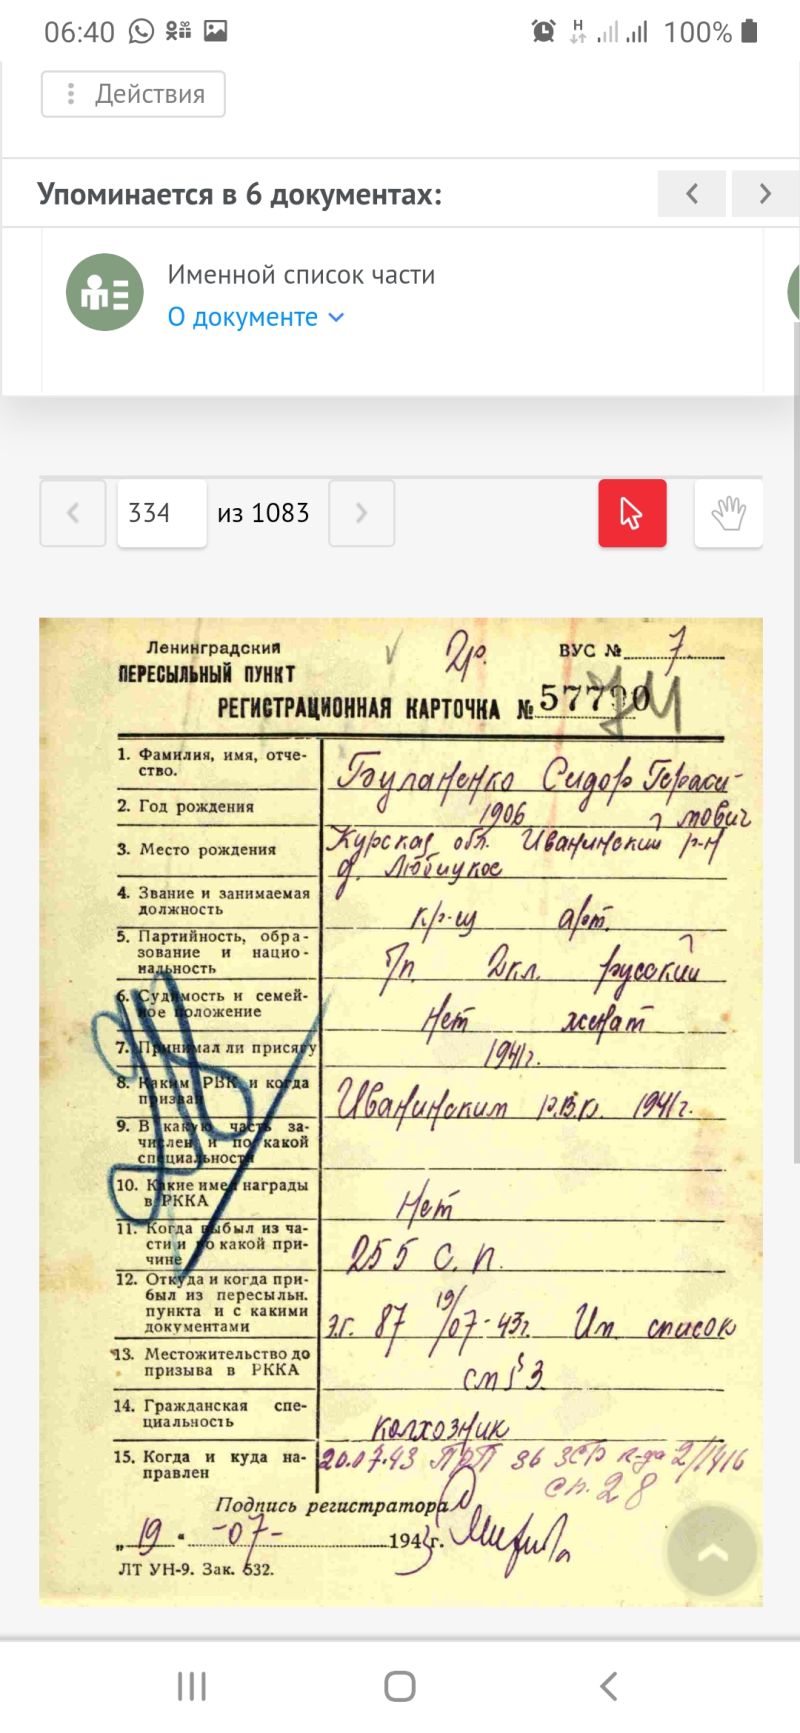 06:40
Н
100%
Действия
Упоминается в 6 документах:
Именной список части
О документе
334 из 1083
Ленинградский
ПЕРЕСЫЛЬНЫЙ ПУНКТ
ВУС № 7
РЕГИСТРАЦИОННАЯ КАРТОЧКА № 57790
1. Фамилия, имя, отче-
ство.
Буланенко Сидор Гераси-
мович
2. Год рождения
1906
3. Место рождения
Курская обл. Иванинский р-н
д. Любицкое
4. Звание и занимаемая
должность
кр-ц арт.
5. Партийность, обра-
зование и нацио-
нальность
б/п. 2 кл. русский
6. Судимость и семей-
ное положение
Нет женат
7. Принимал ли присягу
1941г.
8. Каким РВК и когда
призван
Иванинским Р.В.К. 1941г.
9. В какую часть за-
числен и по какой
специальности
10. Какие имел награды
в РККА
Нет
11. Когда выбыл из ча-
сти и по какой при-
чине
255 с. п.
12. Откуда и когда при-
был из пересыльн.
пункта и с какими
документами
э.г. 87 19/07-43г. Им. список
13. Местожительство до
призыва в РККА
см § 3.
14. Гражданская спе-
циальность
колхозник
15. Когда и куда на-
правлен
20.07.43 36 ЗСП к-да 2/1416
сп. 28
Подпись регистратора
„19" -07- 1943г.
ЛТ УН-9. Зак. 532.